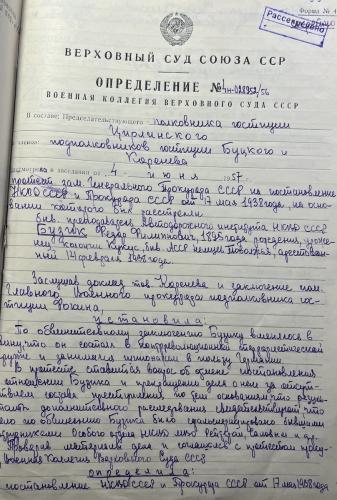 Форма № 4
Рассекречено
ВЕРХОВНЫЙ СУД СОЮЗА ССР
ОПРЕДЕЛЕНИЕ № 4н-028352/56
ВОЕННАЯ КОЛЛЕГИЯ ВЕРХОВНОГО СУДА СССР
В составе: Председательствующего полковника юстиции
Цирлинского
подполковников юстиции Буцкого и
Каренева
в заседании от 4 июня 1957 г.
протест зам. Генерального Прокурора СССР на постановление
НКВД СССР и Прокурора СССР от 17 мая 1938 года, на осно-
вании которого был расстрелян
быв. преподаватель Автодорожного института НКВД СССР
Бузик Федор Филиппович, 1895 года рождения, уроже-
нец колонии Куккус, быв. АССР немцев Поволжья, арестован-
ный 14 февраля 1938 года.
Заслушав доклад тов. Каренева и заключение пом.
Главного Военного прокурора подполковника юс-
тиции
установила:
По обвинительному заключению Бузику вменялось в
вину, что он состоял в контрреволюционной террористической
группе и занимался шпионажем в пользу Германии.
В протесте ставится вопрос об отмене постановления
в отношении Бузика и прекращении дела о нем за отсутс-
твием состава преступления по тем основаниям, что резуль-
таты дополнительного расследования свидетельствуют, что
дело по обвинению Бузика было сфальсифицировано бывшими
сотрудниками Особого отдела НКВД МВО и др.
Проверив материалы дела и согласившись с протестом
Военная Коллегия Верховного Суда СССР
определила:
постановление НКВД СССР и Прокурора СССР от 17 мая 1938 года